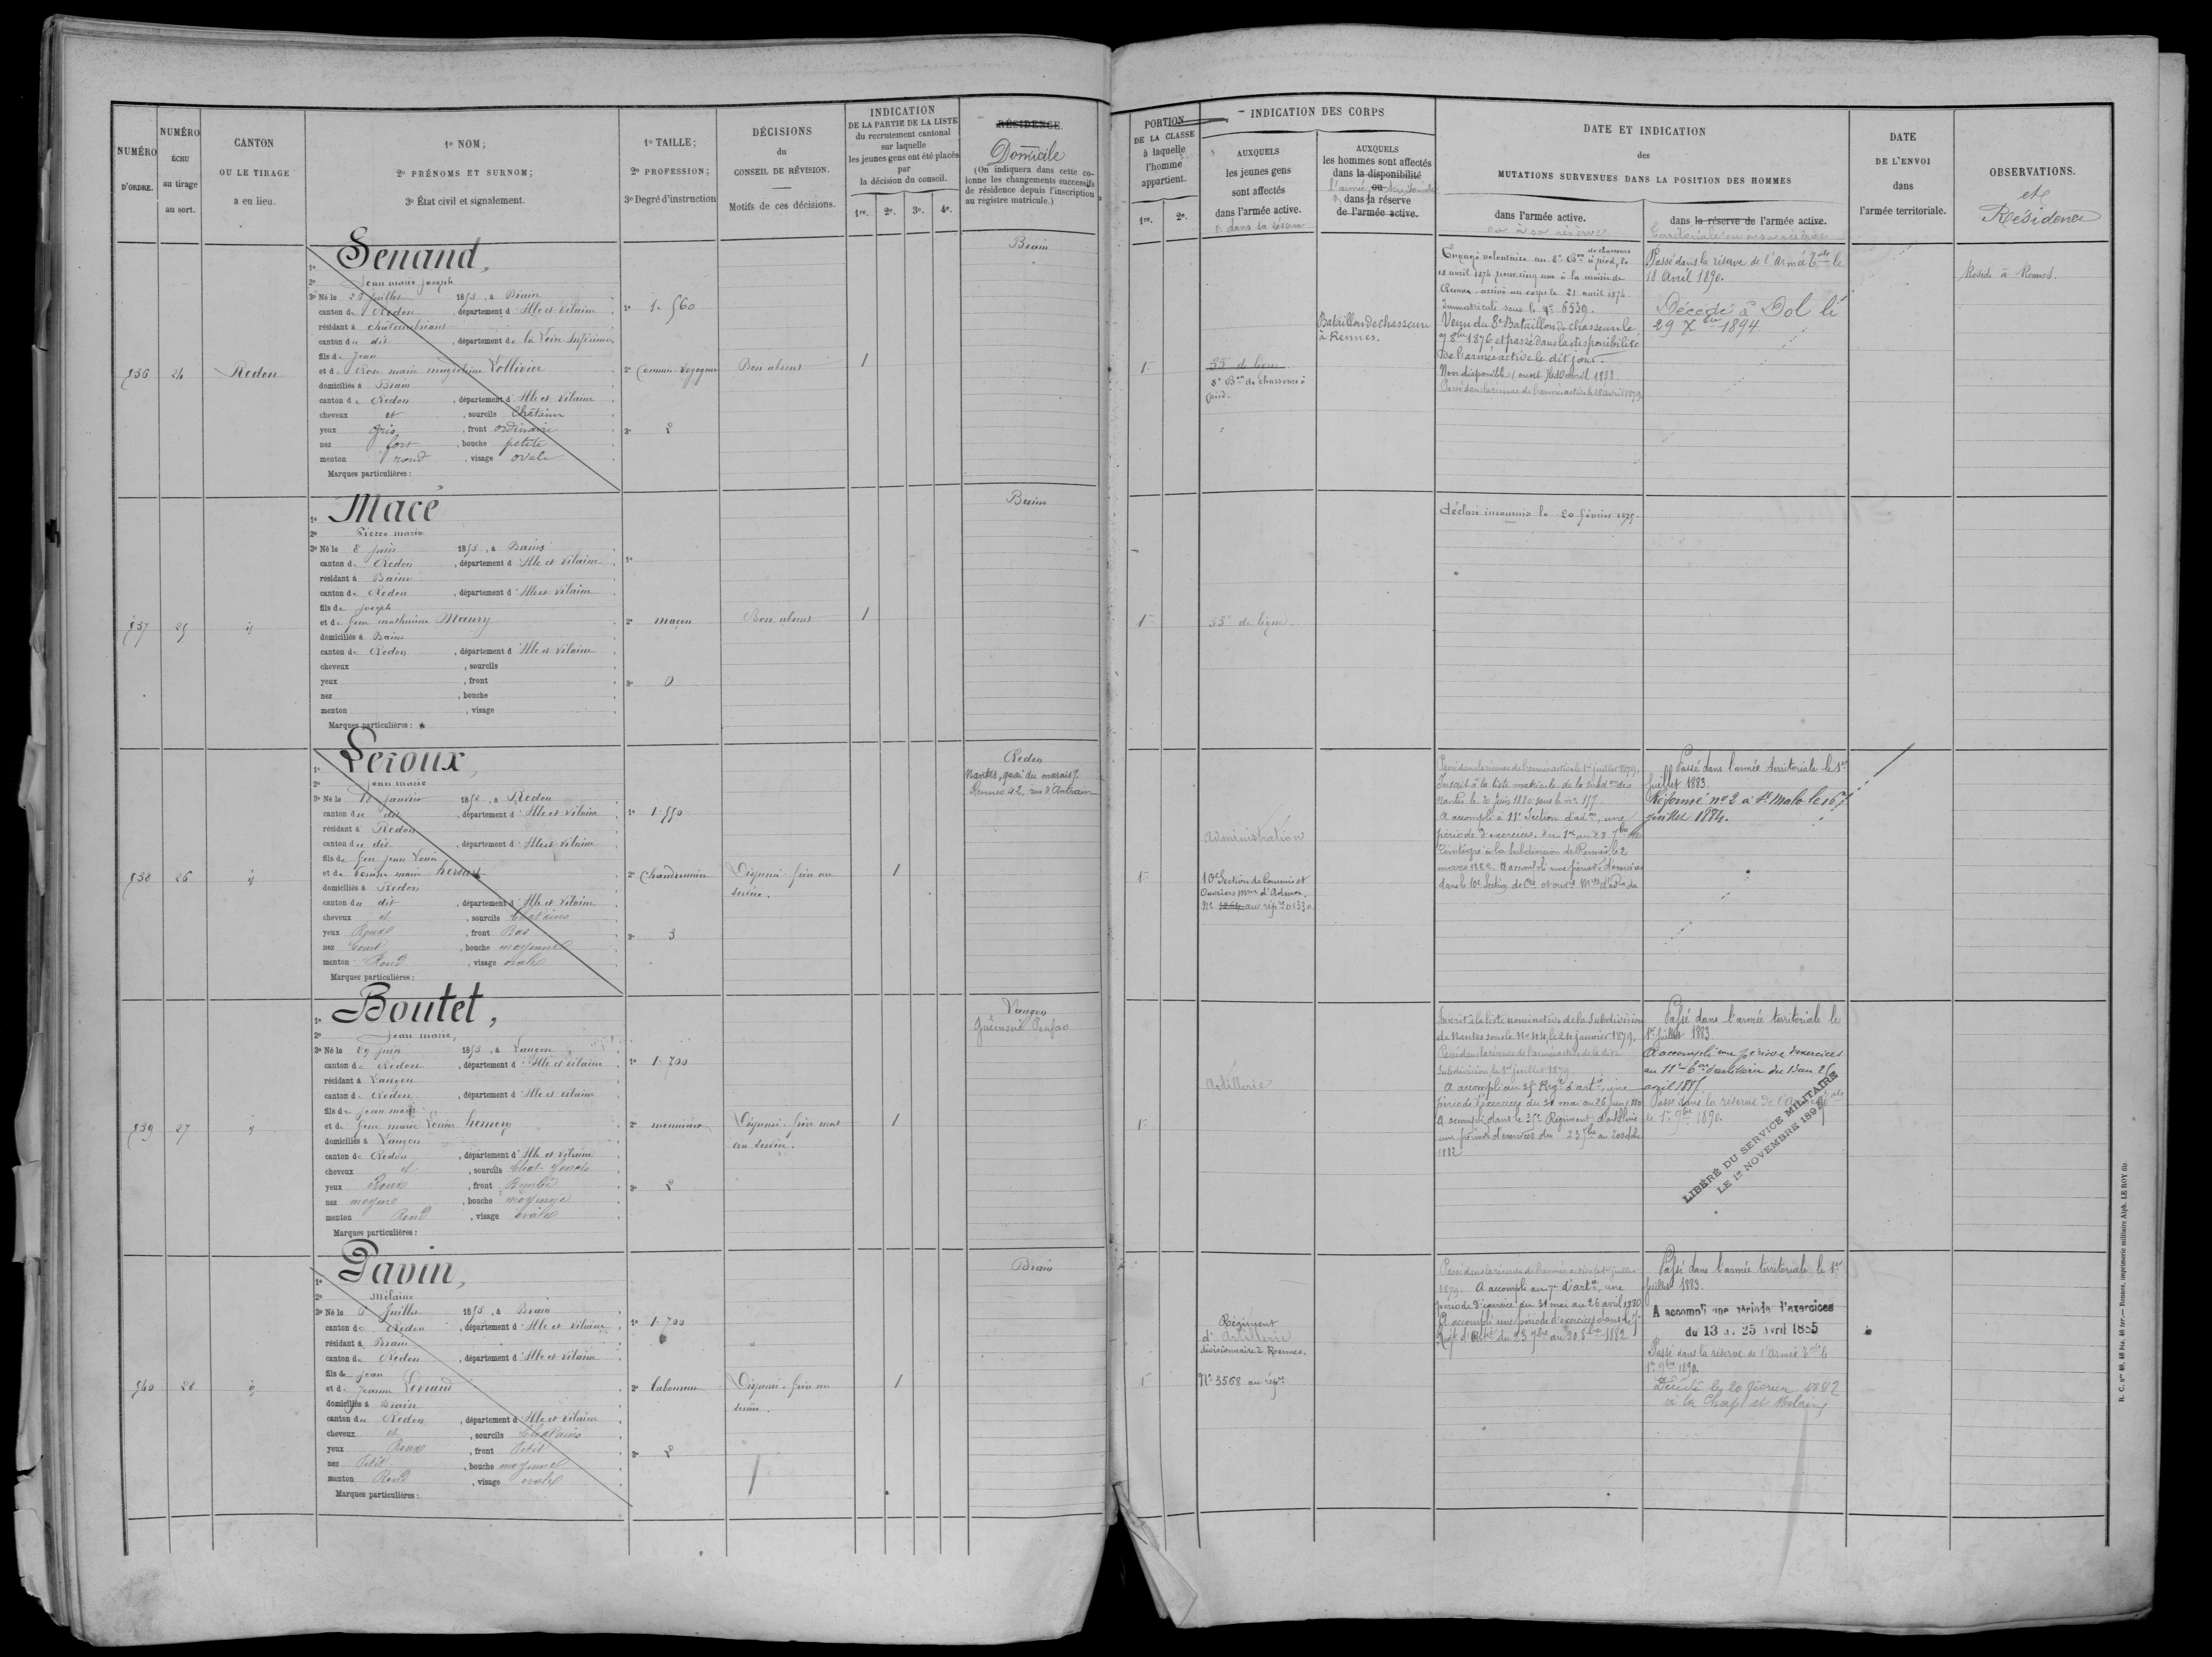 NUMÉRO
D'ORDRE.
NUMÉRO
ÉCHU
au tirage
au sort.
CANTON
OU LE TIRAGE
a eu lieu.
1º NOM;
2º PRÉNOMS ET SURNOM;
3º État civil et signalement.
1º TAILLE;
2º PROFESSION;
3º Degré d'instruction
DÉCISIONS
du
CONSEIL DE RÉVISION.
Motifs de ces décisions.
INDICATION
DE LA PARTIE DE LA LISTE
du recrutement cantonal
sur laquelle
les jeunes gens ont été placés
par
la décision du conseil.
1re. 2e. 3e. 4e.
RÉSIDENCE.
Domicile
(On indiquera dans cette co-
lonne les changements successifs
de résidence depuis l'inscription
au registre matricule.)
PORTION
DE LA CLASSE
à laquelle
l'homme
appartient.
1re. 2e.
INDICATION DES CORPS
AUXQUELS
les jeunes gens
sont affectés
dans l'armée active.
et dans sa réserve
AUXQUELS
les hommes sont affectés
dans la disponibilité
l'armée, ou territoriale
dans la réserve
de l'armée active.
DATE ET INDICATION
des
MUTATIONS SURVENUES DANS LA POSITION DES HOMMES
dans l'armée active.
ou à sa réserve
dans la réserve de l'armée active.
territoriale ou à sa réserve
DATE
DE L'ENVOI
dans
l'armée territoriale.
OBSERVATIONS.
et
Résidence
536 24 Redon
1º Senand,
2º Jean marie joseph
3º Né le juillet 1853, à Brain
canton de Redon, département d'Ille et Vilaine
résidant à châteaubriant
canton du dit, département de la Loire Inférieure
fils de Jean
et de Rose marie Lollivier
domiciliés à Brain
canton de Redon, département d'Ille et Vilaine
cheveux et, sourcils Châtain
yeux gris, front ordinaire
nez fort, bouche petite
menton rond, visage ovale
Marques particulières:
1º 1. 560
2º Commis-Voyageur
3º 2
Bon absent
1
Brain
1re
35e de ligne
8e Bon de chasseurs à
pied.
Bataillon de chasseurs
à Rennes.
Engagé volontaire au 8e Bon de chasseurs à pied, le
18 avril 1874 pour cinq ans à la mairie de
Rennes - arrivé au corps le 21 avril 1874
Immatriculé sous le nº 6539.
Venu du 8e Bataillon de chasseurs le
9 8bre 1876 et passé dans la disponibilité
de l'armée active le dit jour.
Passé dans la réserve de l'armée active le 18 avril 1879
Passé dans la réserve de l'Armée Tale le
18 Avril 1890.
Décédé à Dol le
29 Xbre 1894
Réside à Rennes.
537 25 id
1º Macé
2º Pierre marie
3º Né le 8 juin 1853, à Bains
canton de Redon, département d'Ille et Vilaine
résidant à Bains
canton de Redon, département d'Ille et Vilaine
fils de joseph
et de feue mathurine Maury
domiciliés à Bains
canton de Redon, département d'Ille et Vilaine
cheveux, sourcils
yeux, front
nez, bouche
menton, visage
Marques particulières:
1º
2º maçon
3º 0
Bon absent
1
Bains
1re
35e de ligne.
déclaré insoumis le 20 février 1875.
538 26 id
1º Leroux,
2º Jean marie
3º Né le 18 janvier 1853, à Redon
canton du dit, département d'Ille et Vilaine
résidant à Redon
canton du dit, département d'Ille et Vilaine
fils de feu jean Louis
domiciliés à Redon
canton du dit, département d'Ille et Vilaine
cheveux et, sourcils Chatains
yeux Roux, front Bas
nez Court, bouche moyenne
menton Rond, visage ovale
Marques particulières:
1º 1. 550
2º Chaudronnier
3º 3
Dispensé
service.
1
Redon
Nantes, quai du marais 7.
Rennes 42, rue d'Antrain
1re
Administration
10e Section de Commis et
Ouvriers mres d'Admon.
Nº 1264 au répre 01330.
Passé dans la réserve de l'armée active le 1er juillet 1879.
Inscrit à la liste matricule de la subdon de
Nantes le 20 juin 1880 sous le nº 157
A accompli à 11e Section d'adon, une
période d'exercices, du 1er au 28 7bre 1880
Réintégré à la Subdivision de Rennes le 2
mars 1882. A accompli une période d'exercices
Passé dans l'armée territoriale le 1er
juillet 1883.
Réformé nº 2 à St Malo le 16
juillet 1884.
539 27 id
1º Boutet,
2º Jean marie,
3º Né le 29 juin 1853, à Langon
canton de Redon, département d'Ille et Vilaine
résidant à Langon
canton de Redon, département d'Ille et Vilaine
fils de jean marie
et de feue marie Louise hemery
domiciliés à Langon
canton de Redon, département d'Ille et Vilaine
cheveux et, sourcils Chat. foncés
yeux Roux, front Bombé
nez moyen, bouche moyenne
menton Rond, visage ovale
Marques particulières:
1º 1. 700
2º menuisier
3º 2
Dispensé
au service.
1
Langon
Guémené Penfao
1re
Artillerie
Inscrit à la liste nominative de la Subdivision
de Nantes sous le Nº 44, le 24 janvier 1879.
Passé dans la réserve de l'armée active de la dite
Subdivision le 1er juillet 1879.
A accompli au 35e Régt d'artie, une
période d'exercices du 31 mai au 26 juin 1880
A accompli dans le 35e Régiment d'artillerie
une période d'exercices du 23 7bre au 20 octobre
1882
Passé dans l'armée territoriale le
1er juillet 1883
A accompli une période d'exercices
au 11e d'artillerie du 13 au 25
avril 1885
Passé dans la réserve de l'armée Tale
le 1er 9bre 1890.
LIBÉRÉ DU SERVICE MILITAIRE
LE 1er NOVEMBRE 189
540 28 id
1º Davin,
2º Mélaine
3º Né le 6 juillet 1853, à Brain
canton de Redon, département d'Ille et Vilaine
résidant à Brain
canton de Redon, département d'Ille et Vilaine
fils de Jean
et de Jeanne
domiciliés à Brain
canton de Redon, département d'Ille et Vilaine
cheveux et, sourcils Chatains
yeux Roux, front Petit
nez Petit, bouche moyenne
menton Rond, visage ovale
Marques particulières:
1º 1. 700
2º laboureur
3º 2
Dispensé
service.
1
Brain
1re
Régiment
d'Artillerie
divisionnaire à Rennes.
Nº 3568 au répre
Passé dans la réserve de l'armée active le 1er juillet
1879. A accompli au 7e d'artie, une
période d'exercice du 31 mai au 26 avril 1880
A accompli une période d'exercices dans le 7e
Régt d'Artie du 23 7bre au 20 8bre 1882
Passé dans l'armée territoriale le 1er
juillet 1883.
A accompli une période d'exercices
du 13 au 25 avril 1885
Passé dans la réserve de l'Armée Tale le
1er 9bre 1890.
Décédé le 20 février
à la Chap. St Melaine
R. C. nos 49, 48 bis, 48 ter. — Rennes, imprimerie militaire Alph. LE ROY fils